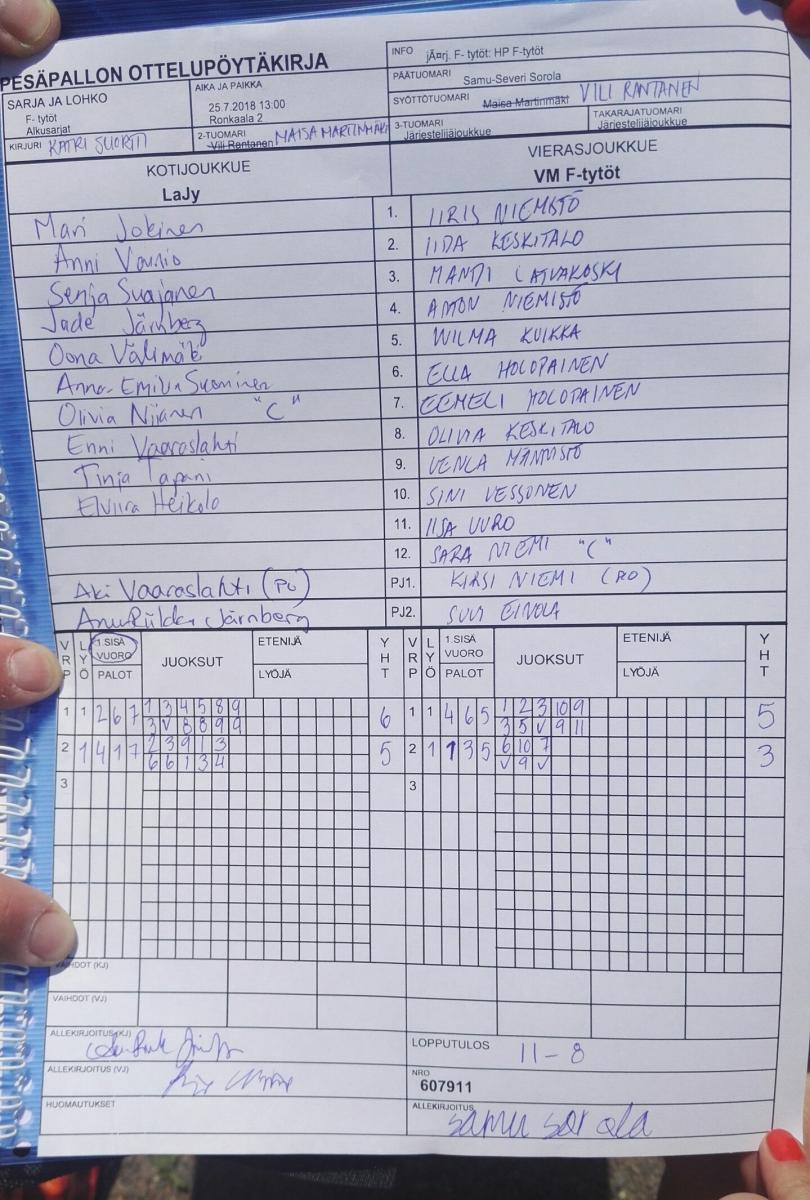 PESÄPALLON OTTELUPÖYTÄKIRJA
INFO jÃ¤rj. F- tytöt: HP F-tytöt
PÄÄTUOMARI Samu-Severi Sorola
SARJA JA LOHKO
F- tytöt
Alkusarjat
AIKA JA PAIKKA
25.7.2018 13:00
Ronkaala 2
SYÖTTÖTUOMARI Maisa Martinmäki VILI RANTANEN
KIRJURI KATRI SUORTTI
2-TUOMARI Vili Rantanen MAISA MARTINMÄKI
3-TUOMARI Järjestelijäjoukkue
TAKARAJATUOMARI Järjestelijäjoukkue
KOTIJOUKKUE
LaJy
VIERASJOUKKUE
VM F-tytöt
Mari Jokinen 1. IIRIS NIEMISTÖ
Anni Vainio 2. IIDA KESKITALO
Senja Suojanen 3. MANDI LATVAKOSKI
Jade Järnberg 4. ANTON NIEMISTÖ
Oona Välimäki 5. WILMA KUIKKA
Anna-Emilia Suominen 6. ELLA HOLOPAINEN
Olivia Nijanen "C" 7. EEMELI HOLOPAINEN
Enni Vaaraslahti 8. OLIVIA KESKITALO
Tinja Tapani 9. VENLA MÄNNISTÖ
Elviira Heikola 10. SINI VESSONEN
11. IISA UURO
12. SARA NIEMI "C"
Aki Vaaraslahti (PU) PJ1. KIRSI NIEMI (PO)
Järnberg PJ2. SUVI EINOLA
VRP LYÖ 1.SISÄ VUORO PALOT JUOKSUT ETENIJÄ LYÖJÄ YHT VRP LYÖ 1.SISÄ VUORO PALOT JUOKSUT ETENIJÄ LYÖJÄ YHT
1 1 2 6 7 1 3 4 5 8 9 6 1 1 4 6 5 1 2 3 10 9 5
3 V 8 8 9 9 3 5 V 9 11
2 1 4 1 7 2 3 9 1 3 5 2 1 1 3 5 6 10 7 3
6 6 1 3 4 V 9 V
3 3
VAIHDOT (KJ)
VAIHDOT (VJ)
ALLEKIRJOITUS (KJ)
LOPPUTULOS 11-8
ALLEKIRJOITUS (VJ)
NRO
607911
HUOMAUTUKSET
ALLEKIRJOITUS samu sorola